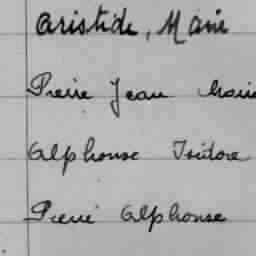 Aristide, Marie
Pierre Jean Marie
Alphonse Isidore
Pierre Alphonse